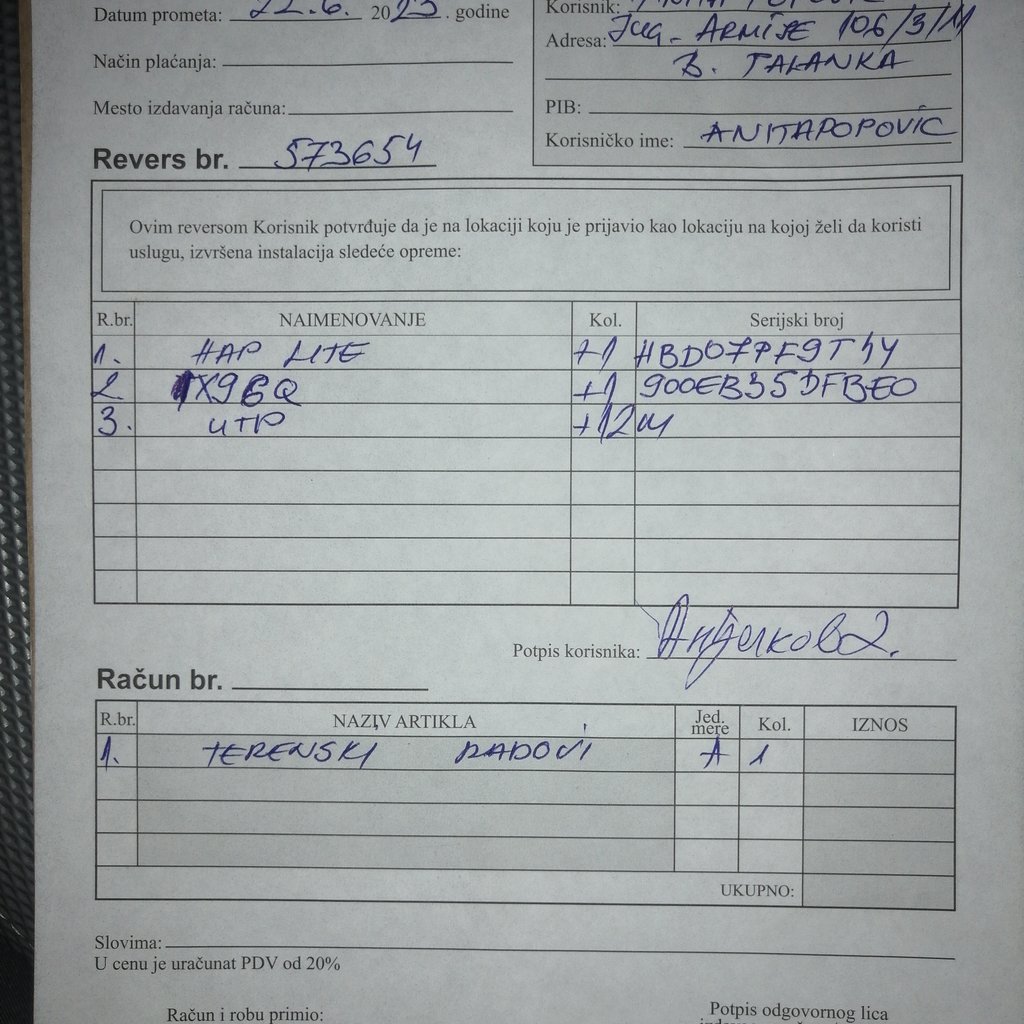 Datum prometa: 22.6. 2023. godine
Korisnik:
Adresa: Jug. Armije 106/3/11
B. PALANKA
Način plaćanja:
Mesto izdavanja računa:
PIB:
Korisničko ime: ANITAPOPOVIC
Revers br. 573654
Ovim reversom Korisnik potvrđuje da je na lokaciji koju je prijavio kao lokaciju na kojoj želi da koristi
uslugu, izvršena instalacija sledeće opreme:
R.br. NAIMENOVANJE Kol. Serijski broj
1. HAP LITE +1 HBD07PF9T4Y
2. X96Q +1 900EB35DFBE0
3. UTP +12m
Potpis korisnika:
Račun br.
R.br. NAZIV ARTIKLA Jed. mere Kol. IZNOS
1. TERENSKI RADOVI A 1
UKUPNO:
Slovima:
U cenu je uračunat PDV od 20%
Račun i robu primio:
Potpis odgovornog lica